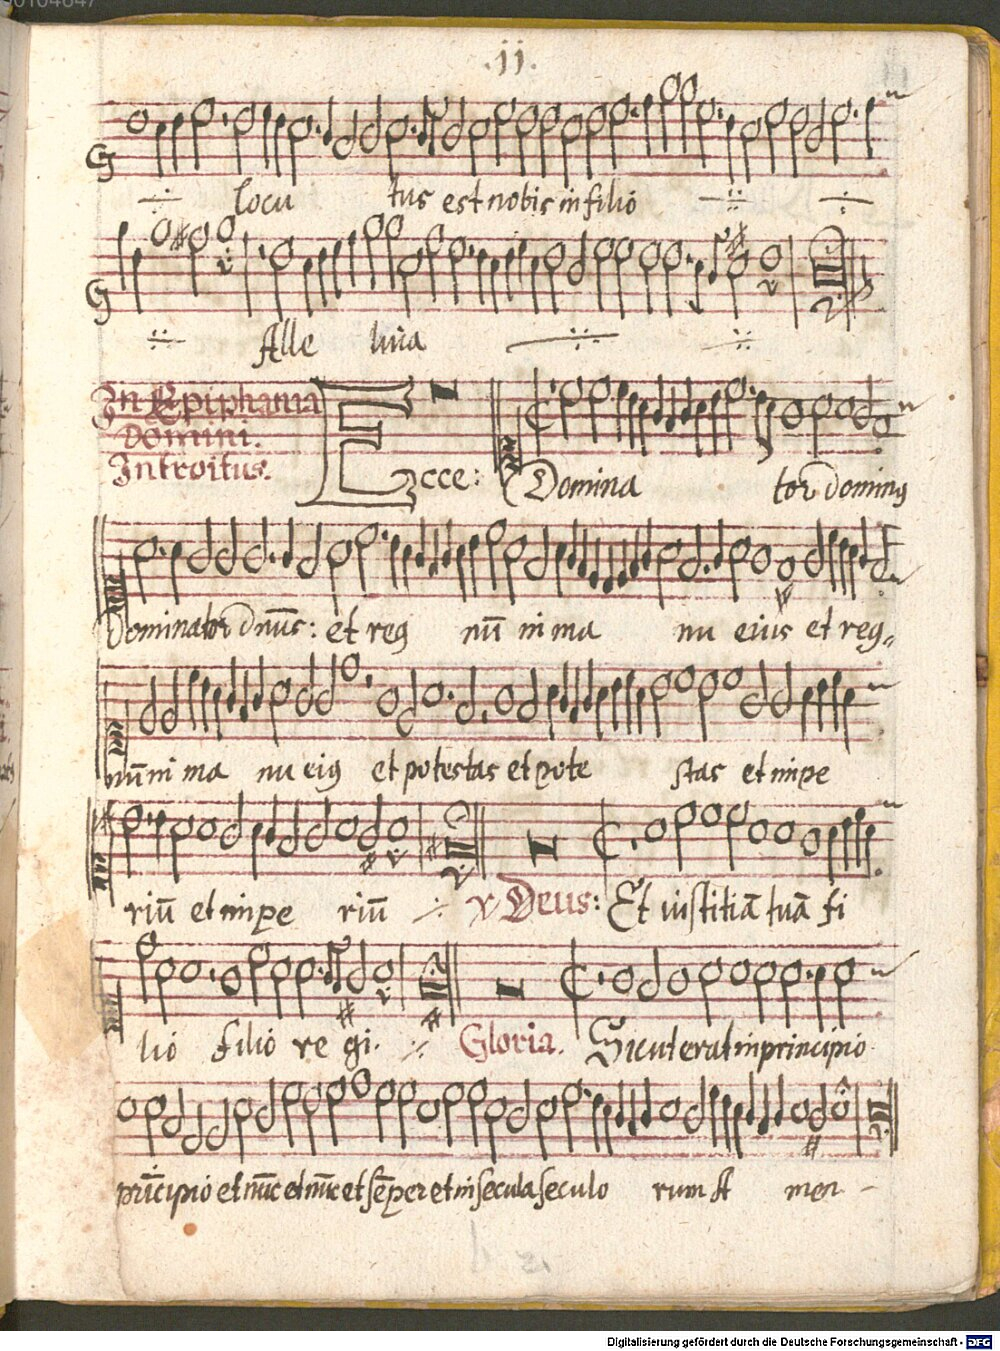 00104647
.11.
locu tus est nobis in filio
Alle luia
In Epiphania
Domini.
Introitus.
Ecce: Domina tor dominus
Dominator dñus: et reg nū in ma nu eius et reg-
nū in ma nu eius et potestas et pote stas et in pe
riū et in pe riū V Deus: Et iustitiā tuā fi
lio filio re gi. Gloria. Sicut erat in principio
prīcipio et nūc et nūc et sēper et in secula seculo rum A men -
Digitalisierung gefördert durch die Deutsche Forschungsgemeinschaft - DFG